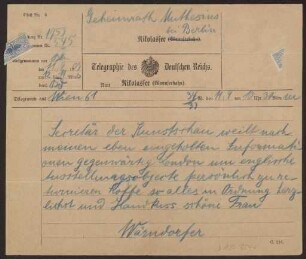 Geheimrath Muthesius
bei Berlin
Nikolassee (Wannseebahn)
Telegraphie des Deutschen Reichs.
Amt Nikolassee (Wannseebahn)
Telegramm aus Wien 61
Secretär der Kunstschau weilt nach
meinen eben eingeholten Informatio
nen gegenwärtig London um englische
Ausstellungsobjecte persönlich zu re
tournieren hoffe so alles in Ordnung herz
lichst und Handkuss schöne Frau
Wärndorfer